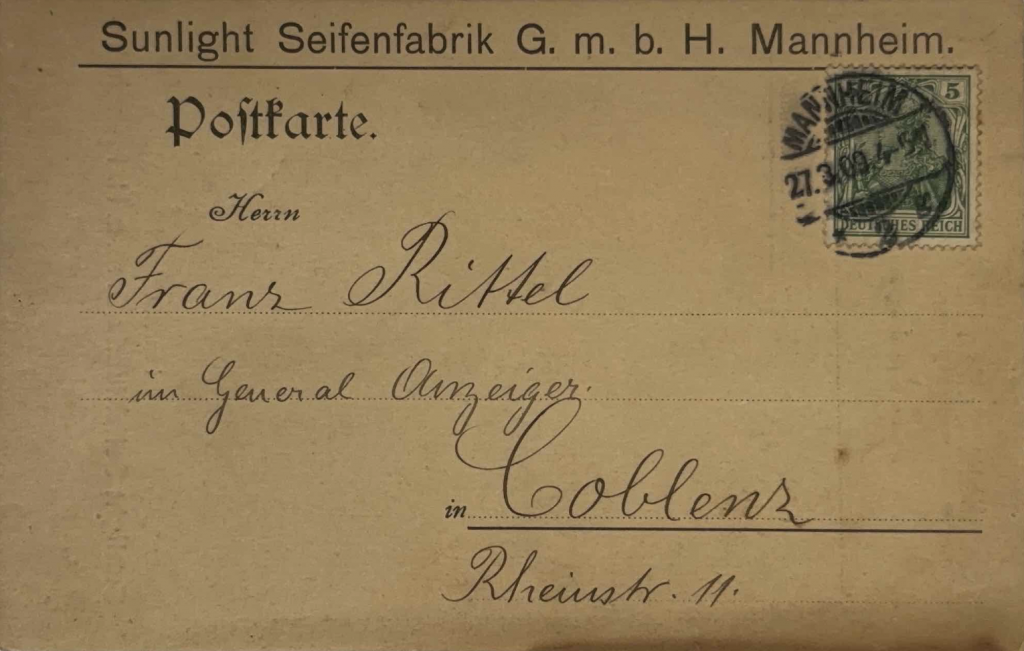 Sunlight Seifenfabrik G. m. b. H. Mannheim.
Postkarte.
5
MANNHEIM
27.3.06. 4-5N
DEUTSCHES REICH
Herrn
Franz Rittel
im General Anzeiger.
in Coblenz
Rheinstr. 11.